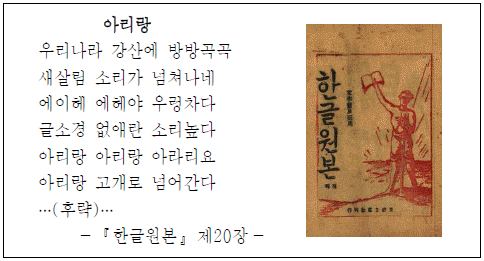 아리랑
우리나라 강산에 방방곡곡
새살림 소리가 넘쳐나네
에이헤 에헤야 우렁차다
글소경 없애란 소리높다
아리랑 아리랑 아라리요
아리랑 고개로 넘어간다
…(후략)…
-『한글원본』제20장-
한글원본